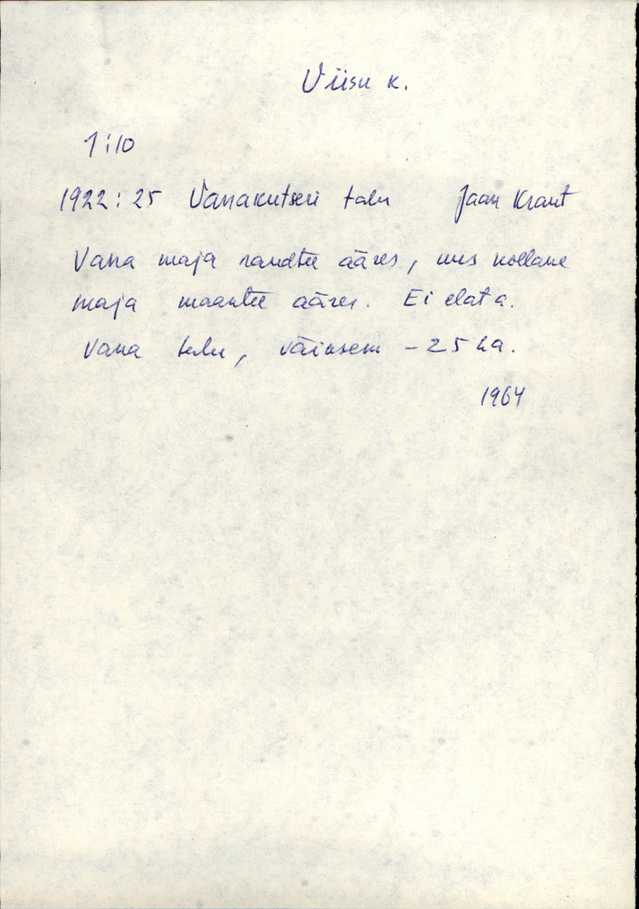 Viisu k.
1:10
1922:25 Vanakutseri talu Jaan Kraut
Vana maja raudtee ääres, uus kollane
maja maantee ääres. Ei elata.
Vana talu, väiksem - 25 ha.
1964